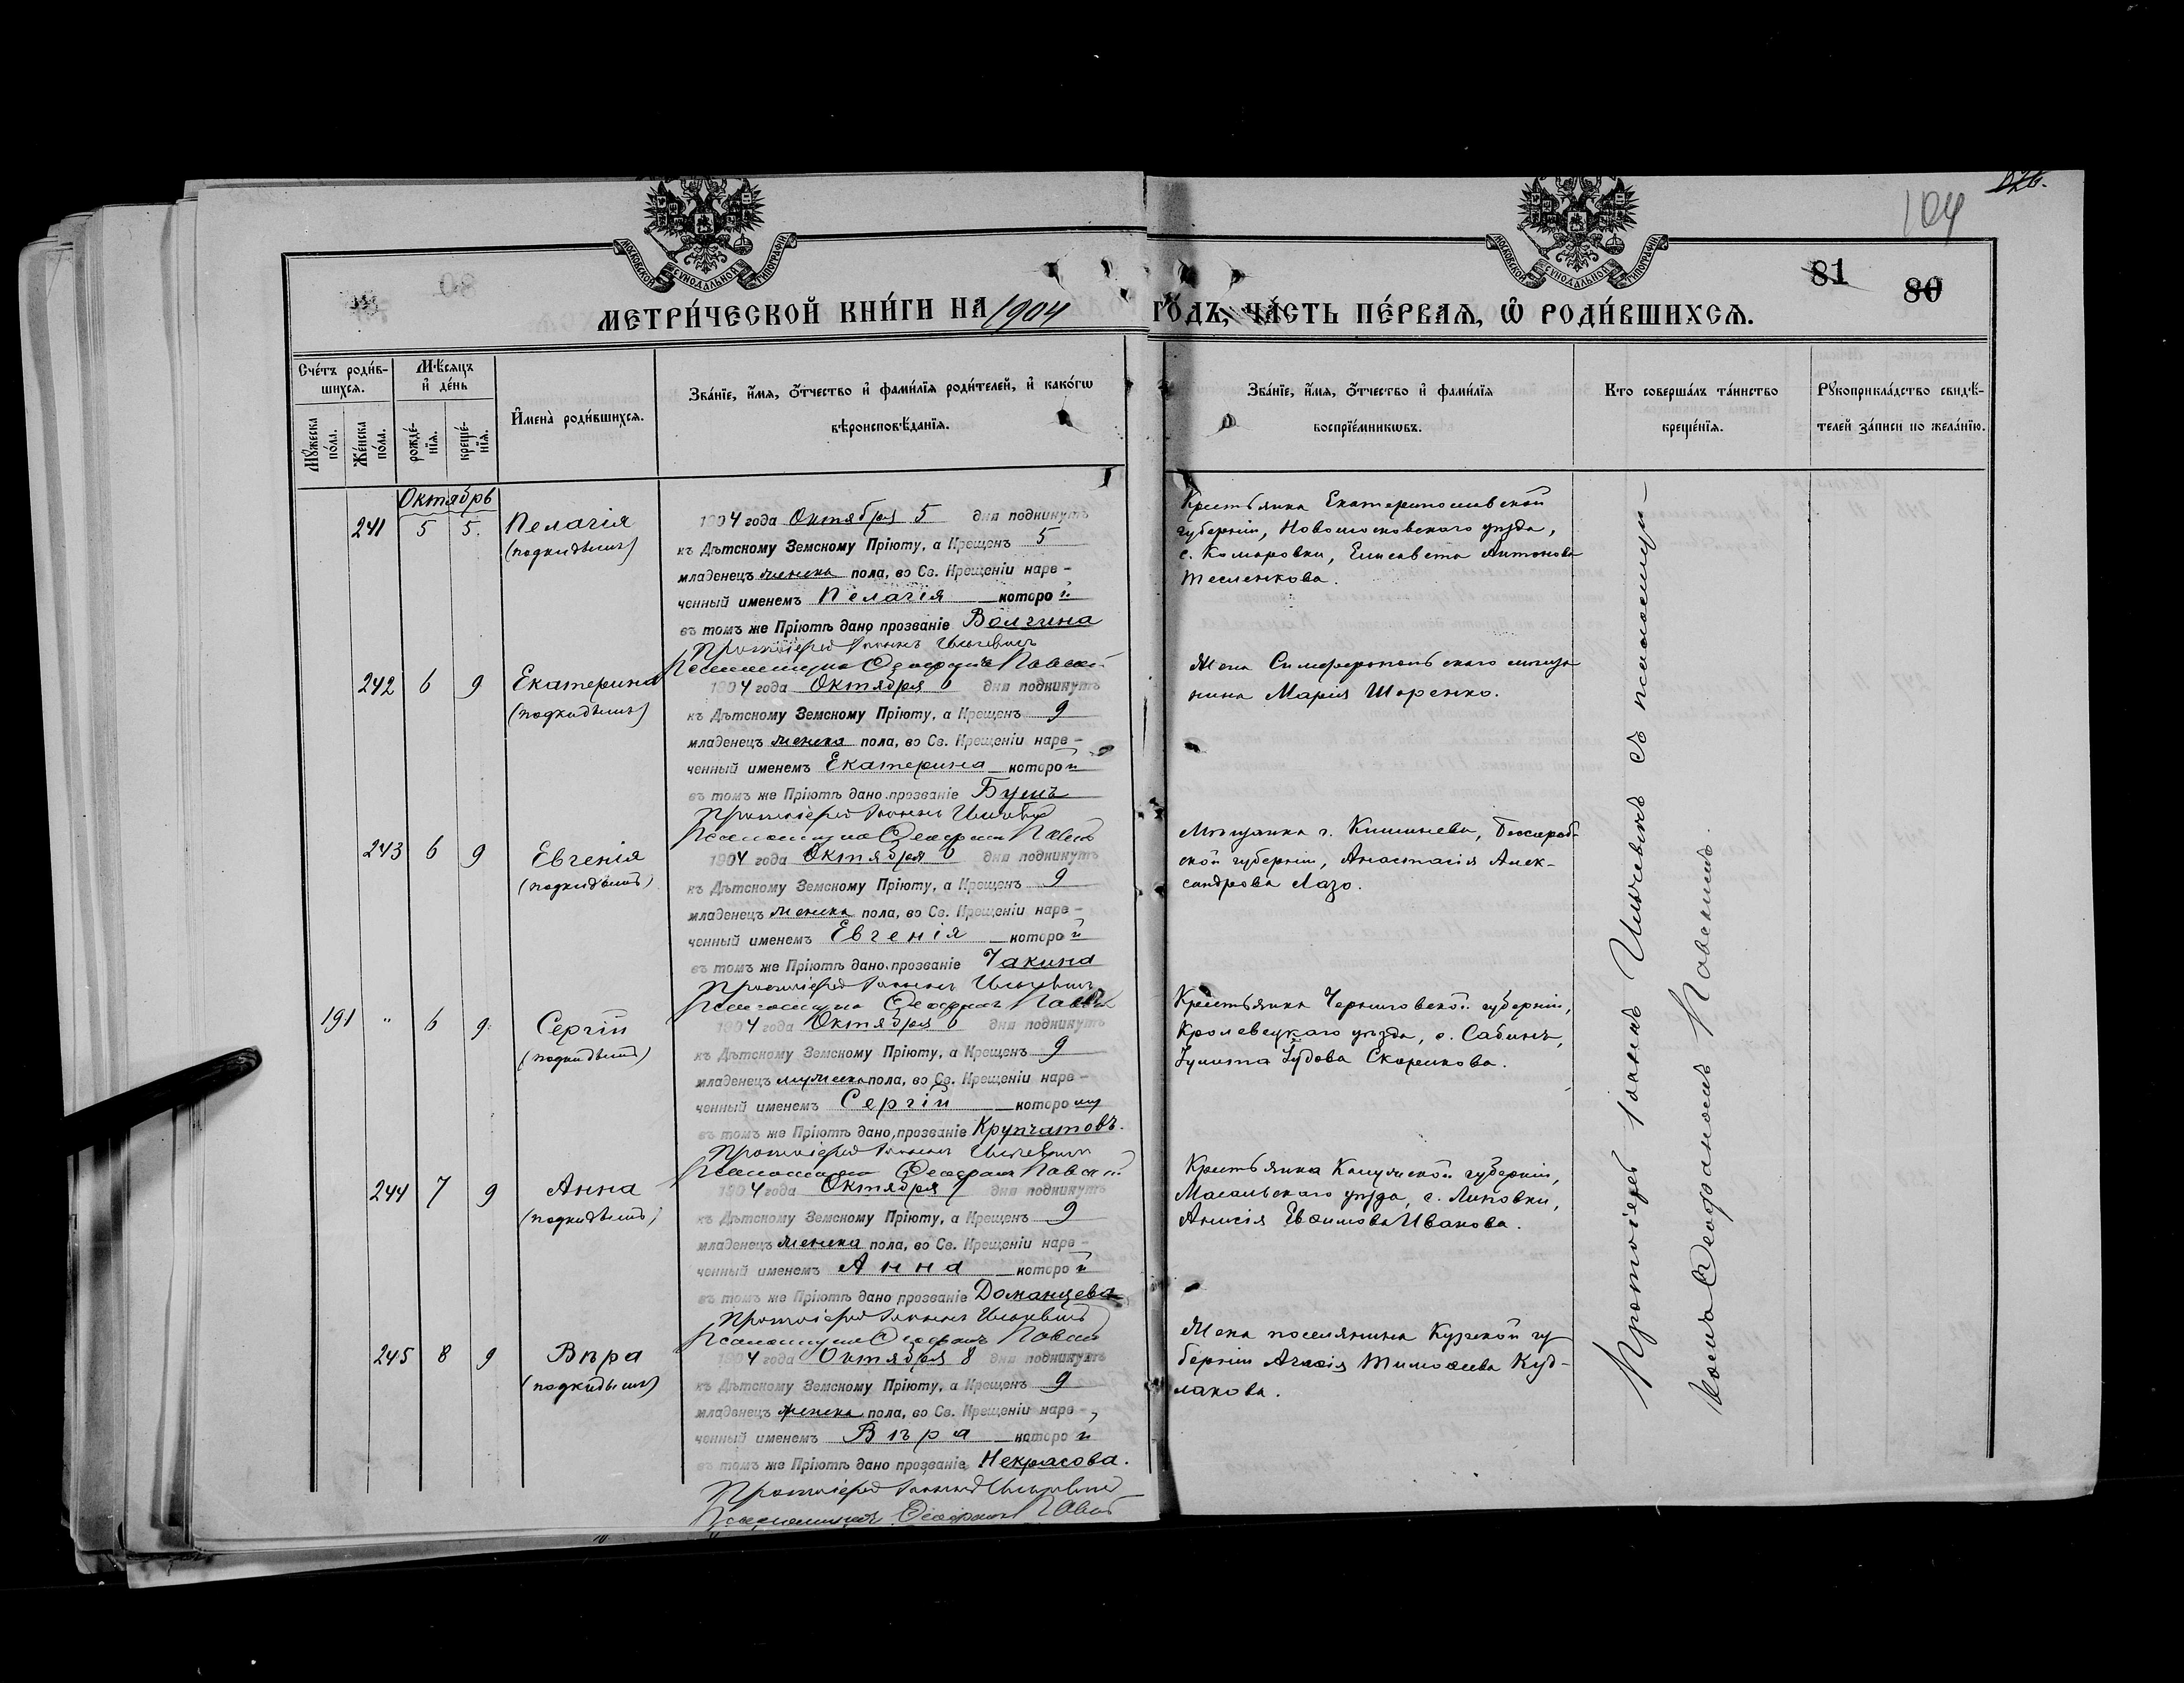 104
81
80
МОСКОВСКОЙ СѴНОДАЛЬНОЙ ТИПОГРАФІИ
МОСКОВСКОЙ СѴНОДАЛЬНОЙ ТИПОГРАФІИ
МЕТРИ́ЧЕСКОЙ КНИ́ГИ НА 1904 ГО́ДЪ, ЧА́СТЬ ПЕ́РВАѦ, Ѡ҆ РОДИ́ВШИХСѦ.
Сче́тъ роди́в-
шихсѧ.
Мꙋ́жеска по́ла.
Же́нска по́ла.
Мѣ́сѧцъ и҆ де́нь
рожде́-нїѧ.
креще́-нїѧ.
И҆мена̀ роди́вшихсѧ.
Зва́нїе, и҆́мѧ, ѻ҆́тчество и҆ фами́лїѧ роди́телей, и҆ како́гѡ
вѣроисповѣ́данїѧ.
Зва́нїе, и҆́мѧ, ѻ҆́тчество и҆ фами́лїѧ
воспрїе́мникѡвъ.
Кто соверша́лъ та́инство
креще́нїѧ.
Рꙋкоприкла́дство свидѣ́-
телей за́писи по жела́нїю.
Октябрь
241 5 5. Пелагія
(подкидышъ)
1904 года Октября 5 дня подкинутъ
къ Дѣтскому Земскому Пріюту, а Крещенъ 5
младенецъ женска пола, во Св. Крещеніи наре-
ченный именемъ Пелагія которой
въ томъ же Пріютѣ дано прозваніе Волгина
Протоіерей Іоаннъ Ильчевичъ
Псаломщикъ Ѳеофанъ Павскій
Крестьянка Екатеринославской
губерніи, Новомосковскаго уѣзда,
с. Комаровки, Елисавета Антонова
Тесленкова.
242 6 9 Екатерина
(подкидышъ)
1904 года Октября 6 дня подкинутъ
къ Дѣтскому Земскому Пріюту, а Крещенъ 9
младенецъ женска пола, во Св. Крещеніи наре-
ченный именемъ Екатерина которой
въ томъ же Пріютѣ дано прозваніе Бушъ
Протоіерей Іоаннъ Ильчевичъ
Псаломщикъ Ѳеофанъ Павскій
Жена Симферопольскаго мѣща
нина Марія Шоренко.
243 6 9 Евгенія
(подкидышъ)
1904 года Октября 6 дня подкинутъ
къ Дѣтскому Земскому Пріюту, а Крещенъ 9
младенецъ женска пола, во Св. Крещеніи наре-
ченный именемъ Евгенія которой
въ томъ же Пріютѣ дано прозваніе Чакина
Протоіерей Іоаннъ Ильчевичъ
Псаломщикъ Ѳеофанъ Павскій
Мѣщанка г. Кишинева, Бессараб-
ской губерніи, Анастасія Алек-
сандрова Лазо.
191 " 6 9 Сергій
(подкидышъ)
1904 года Октября 6 дня подкинутъ
къ Дѣтскому Земскому Пріюту, а Крещенъ 9
младенецъ мужска пола, во Св. Крещеніи наре-
ченный именемъ Сергій которому
въ томъ же Пріютѣ дано прозваніе Крупчатовъ.
Протоіерей Іоаннъ Ильчевичъ
Псаломщикъ Ѳеофанъ Павскій
Крестьянка Черниговской губерніи,
Кролевецкаго уѣзда, с. Сабинъ,
Іулита Іудова Скорикова.
244 7 9 Анна
(подкидышъ)
1904 года Октября 7 дня подкинутъ
къ Дѣтскому Земскому Пріюту, а Крещенъ 9
младенецъ женска пола, во Св. Крещеніи наре-
ченный именемъ Анна которой
въ томъ же Пріютѣ дано прозваніе Доманцева
Протоіерей Іоаннъ Ильчевичъ
Псаломщикъ Ѳеофанъ Павскій
Крестьянка Калужской губерніи,
Масальскаго уѣзда, с. Липовки,
Анисія Евѳимова Иванова.
245 8 9 Вѣра
(подкидышъ)
1904 года Октября 8 дня подкинутъ
къ Дѣтскому Земскому Пріюту, а Крещенъ 9
младенецъ женска пола, во Св. Крещеніи наре-
ченный именемъ Вѣра которой
въ томъ же Пріютѣ дано прозваніе Некрасова.
Протоіерей Іоаннъ Ильчевичъ
Псаломщикъ Ѳеофанъ Павскій
Жена поселянина Курской гу
берніи Агасія Тимоѳеева Куд-
лакова.
Протоіерей Іоаннъ Ильчевичъ съ псаломщи-
комъ Ѳеофаномъ Павскимъ.